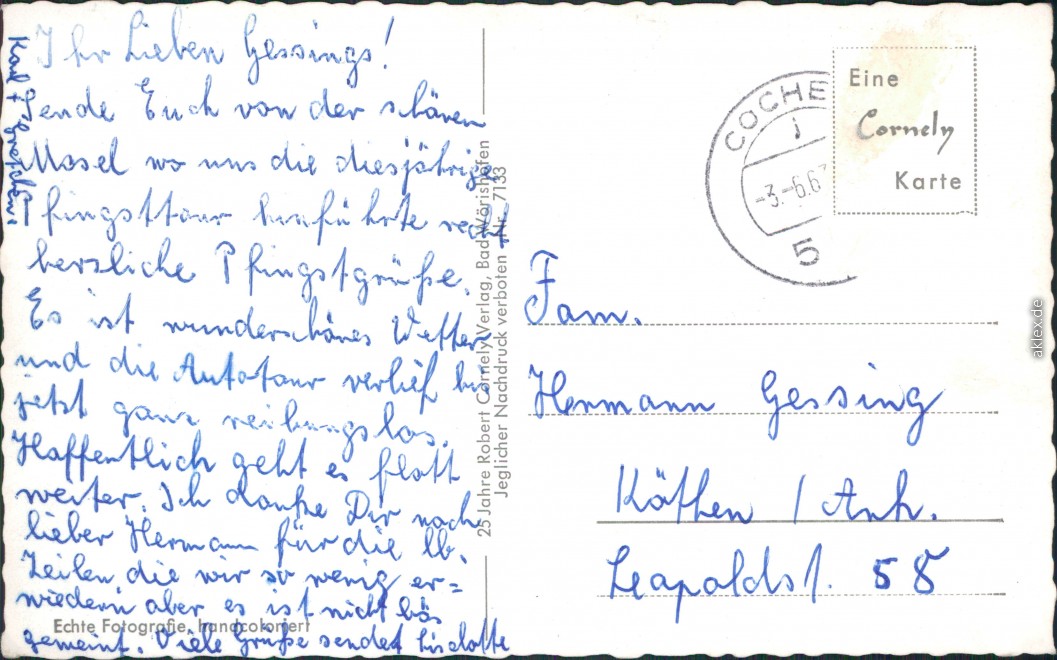 Ihr Lieben Gessings!
Sende Euch von der schönen
Mosel wo uns die diesjährige
Pfingsttour hinführte recht
herzliche Pfingstgrüße.
Es ist wunderschönes Wetter
und die Autotour verlief bis
jetzt ganz reibungslos.
Hoffentlich geht es flott
weiter. Ich danke Dir noch
lieber Hermann für die lb.
Zeilen die wir so wenig er=
wiedern aber es ist nicht bös
gemeint. Viele Grüße sendet Liselotte
Karl + Gretchen!
Echte Fotografie, handcoloriert
25 Jahre Robert Cornely Verlag, Bad Wörishofen
Jeglicher Nachdruck verboten Nr. 7133
COCHE
-3.-6.6
5
Eine
Cornely
Karte
Fam.
Hermann Gessing
Köthen / Anh.
Leopoldst. 58
aklex.de